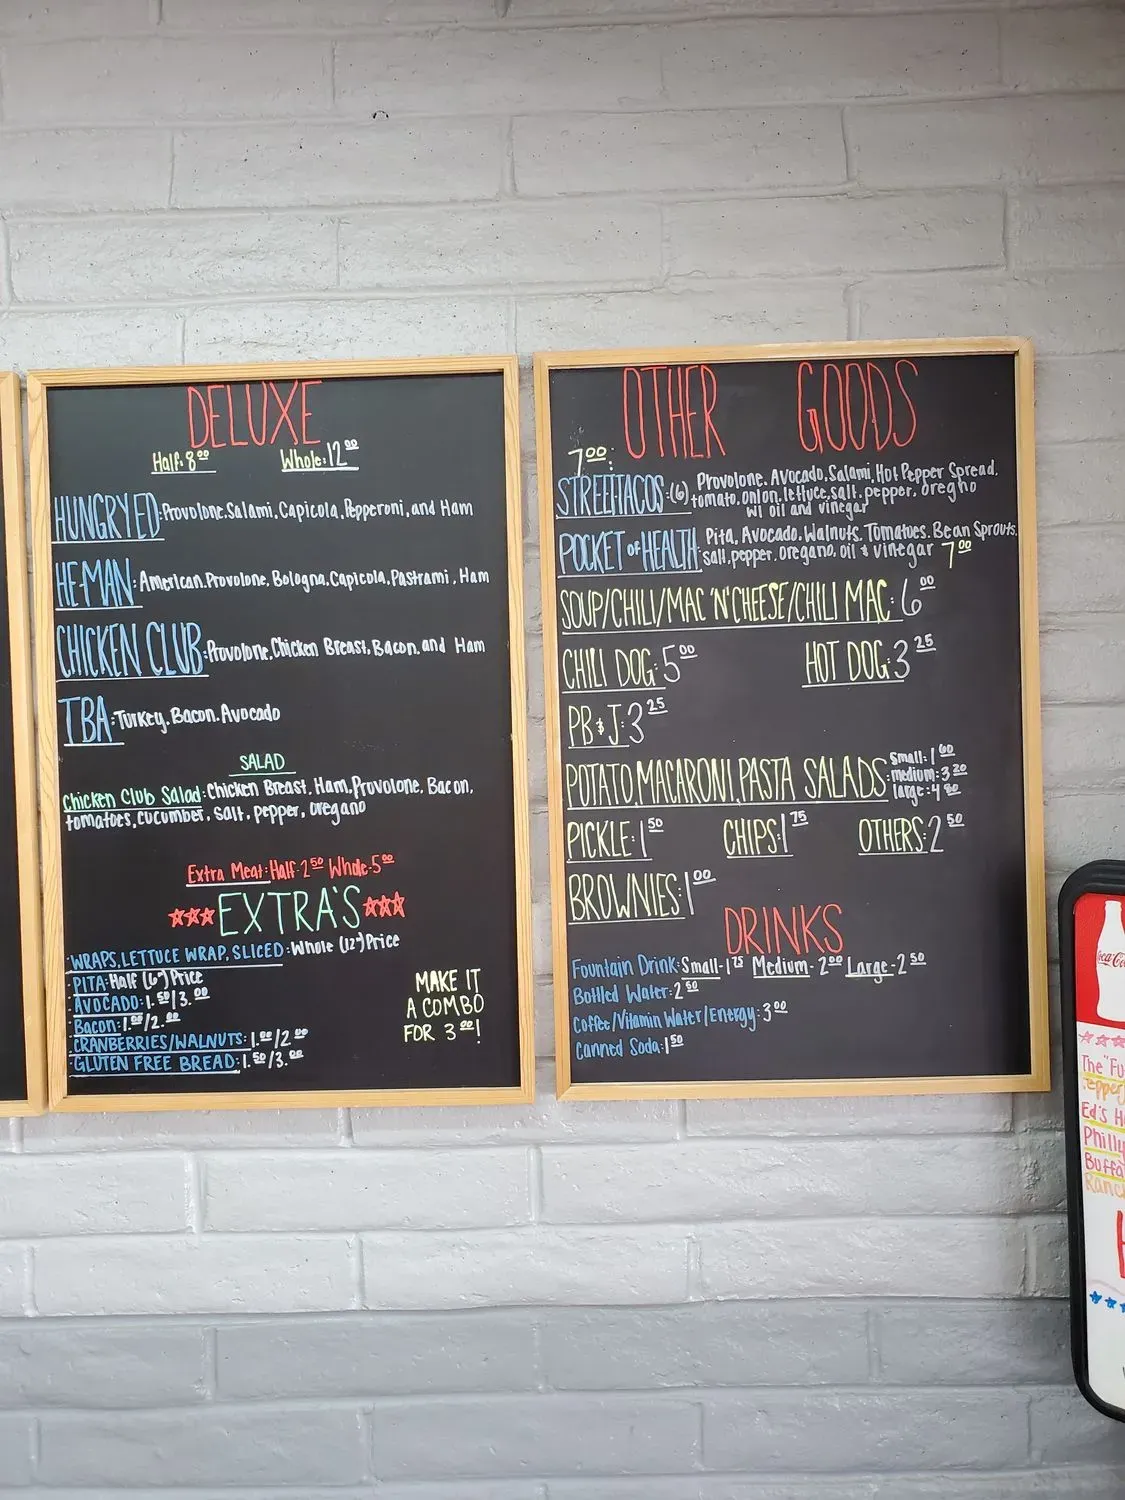 DELUXE
Half: 8.00 Whole: 12.00
HUNGRY ED: Provolone, Salami, Capicola, Pepperoni, and Ham
HE-MAN: American, Provolone, Bologna, Capicola, Pastrami, Ham
CHICKEN CLUB: Provolone, Chicken Breast, Bacon, and Ham
TBA: Turkey, Bacon, Avocado
SALAD
Chicken Club Salad: Chicken Breast, Ham, Provolone, Bacon,
tomatoes, cucumber, salt, pepper, oregano
Extra Meat: Half-2.50 Whole-5.00
EXTRA'S
WRAPS, LETTUCE WRAP, SLICED: Whole (12") Price
PITA: Half (6") Price
AVOCADO: 1.50/3.00
Bacon: 1.00/2.00
CRANBERRIES/WALNUTS: 1.00/2.00
GLUTEN FREE BREAD: 1.50/3.00
MAKE IT
A COMBO
FOR 3.00!
OTHER GOODS
7.00:
STREETTACOS: (6) Provolone, Avocado, Salami, Hot Pepper Spread,
tomato, onion, lettuce, salt, pepper, oregno
w/ oil and vinegar
POCKET of HEALTH: Pita, Avocado, Walnuts, Tomatoes, Bean Sprouts,
salt, pepper, oregano, oil & vinegar 7.00
SOUP/CHILI/MAC 'N' CHEESE/CHILI MAC: 6.00
CHILI DOG: 5.00 HOT DOG: 3.25
PB & J: 3.25
POTATO, MACARONI, PASTA SALADS: Small: 1.60
medium: 3.20
large: 4.80
PICKLE: 1.50 CHIPS: 1.75 OTHERS: 2.50
BROWNIES: 1.00
DRINKS
Fountain Drink: Small-1.75 Medium-2.00 Large-2.50
Bottled Water: 2.50
Coffee/Vitamin Water/Energy: 3.00
Canned Soda: 1.50
The "Fu
epper
Ed's H
Philly
Buffa
Ranc